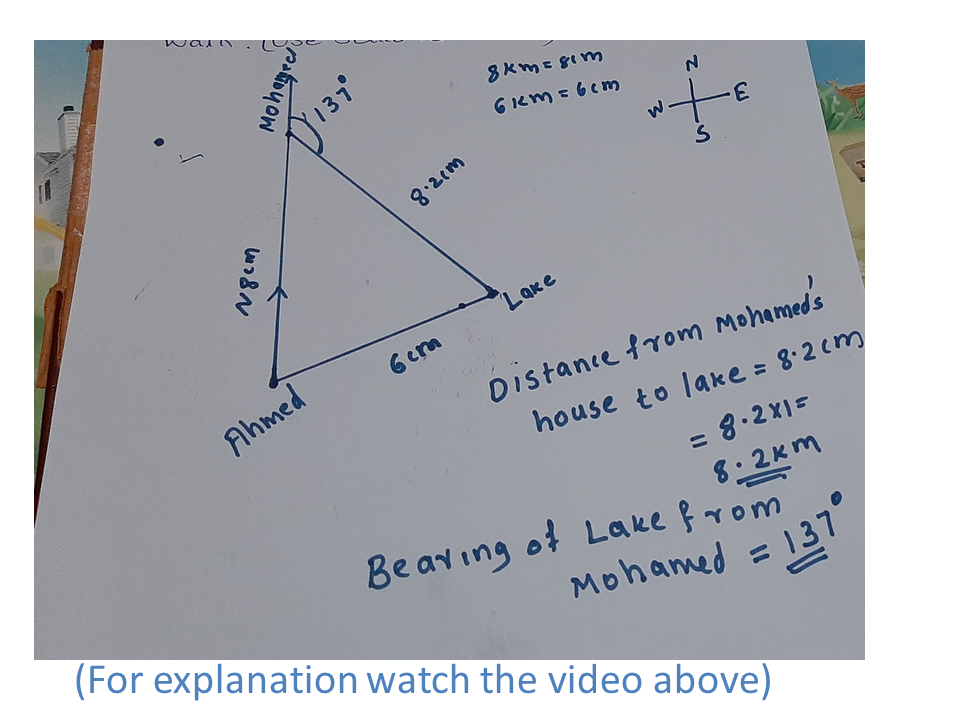 8km = 8cm
6km = 6cm
N
W E
S
Mohamed
137°
8.2cm
N 8cm
Lake
6cm
Ahmed
Distance from Mohamed's
house to lake = 8.2cm
= 8.2x1=
8.2km
Bearing of Lake from
Mohamed = 137°
(For explanation watch the video above)